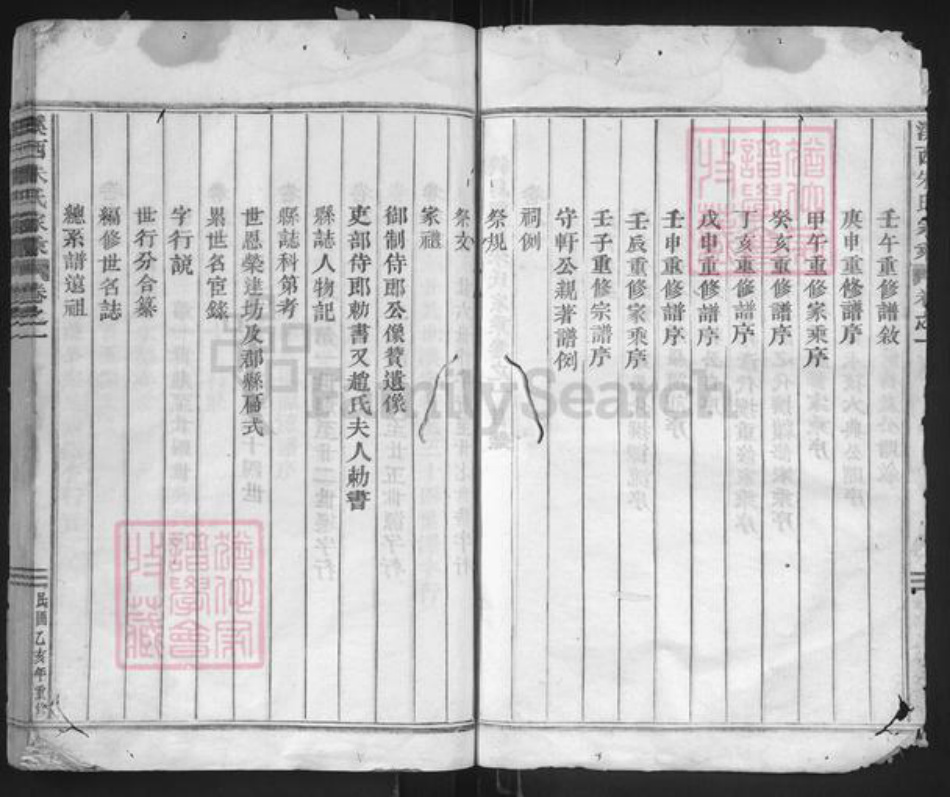 壬午重修譜敘
庚申重修譜序
甲午重修家乘序
癸亥重修譜序
丁亥重修譜序
戊申重修譜序
壬申重修譜序
壬辰重修家乘序
壬子重修宗譜序
守軒公親著譜例
祠例
祭規
祭文
家禮
御制侍郎公像贊遺像
吏部侍郎勅書又趙氏夫人勅書
縣誌人物記
縣誌科第考
世恩榮達坊及郡縣扁式
累世名宦錄
字行說
世行分合纂
編修世名誌
總系譜遠祖
溪西朱氏家乘 卷之一
民國乙亥年重修
猶他家譜學會收藏
猶他家譜學會收藏
FamilySearch